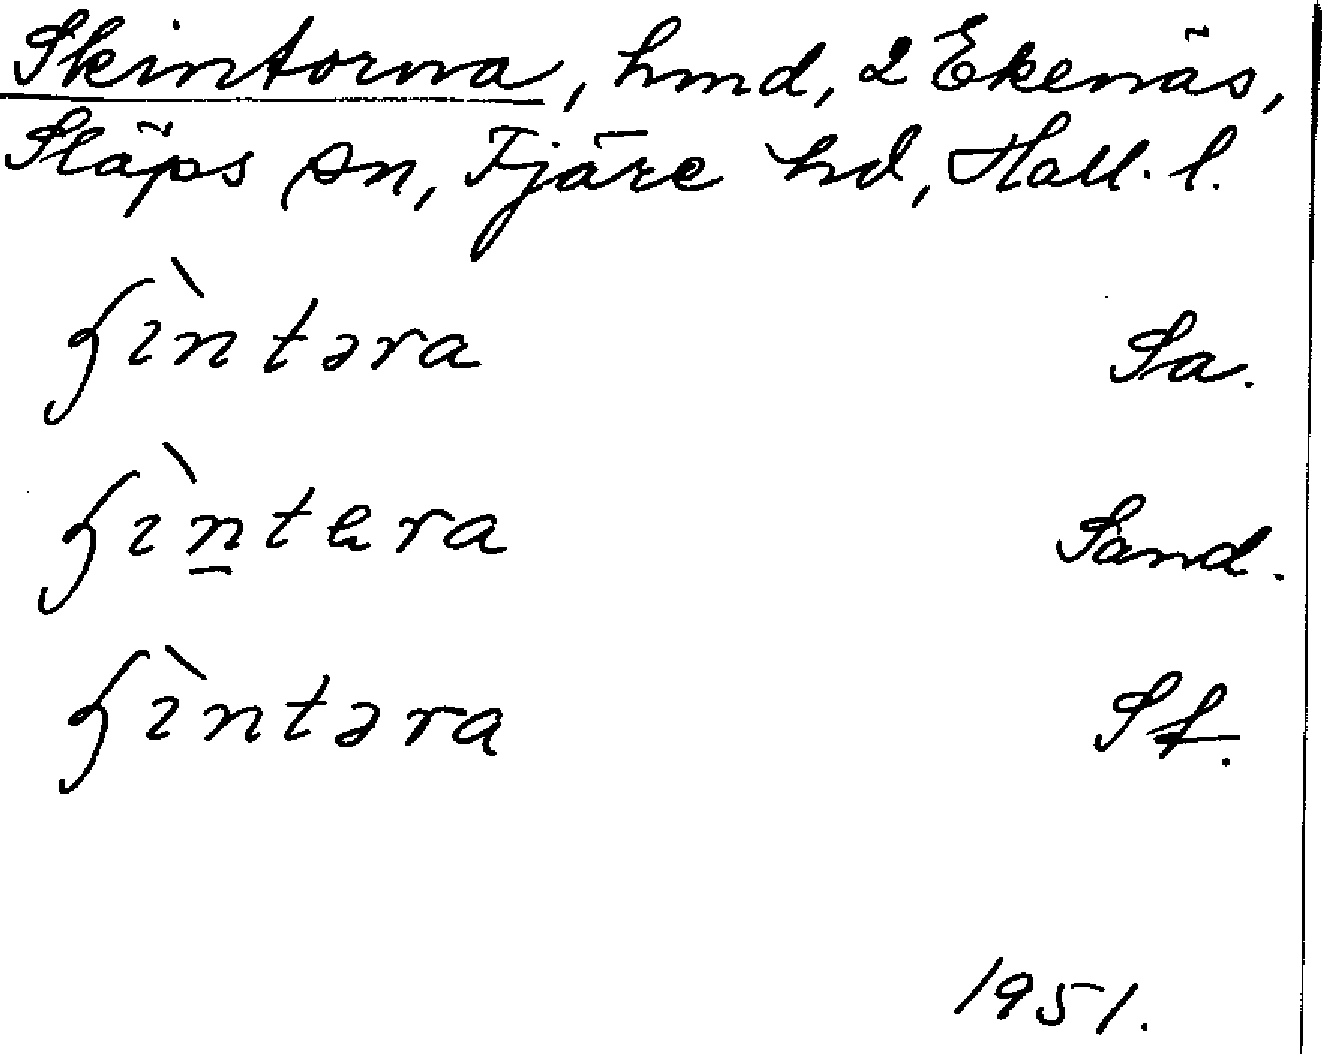 Skintorna, hmd, 2 Ekenäs,
Släps sn, Fjäre hd, Hall. l.
ʂìntəra Sa.
ʂìn̲tera Sand.
ʂìntəra St.
1951.